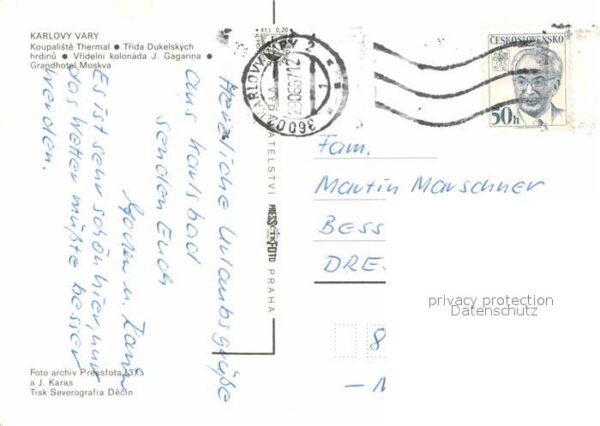 KARLOVY VARY
Koupaliště Thermal ● Třída Dukelských
hrdinů ● Vřídelní kolonáda J. Gagarina ●
Grandhotel Moskva
Kčs 0,20
Herzliche Urlaubsgrüße
aus Karlsbad
senden Euch
u.
Es ist sehr schön hier, nur
das Wetter müßte besser
werden.
VYDAVATELSTVÍ PRESSFOTO PRAHA
KARLOVY VARY 2
36002
1
ČESKOSLOVENSKO
50h
Fam.
Martin Marschner
BESS
DRE
privacy protection
Datenschutz
8
Foto archiv Pressfota
a J. Karas
Tisk Severografia Děčín